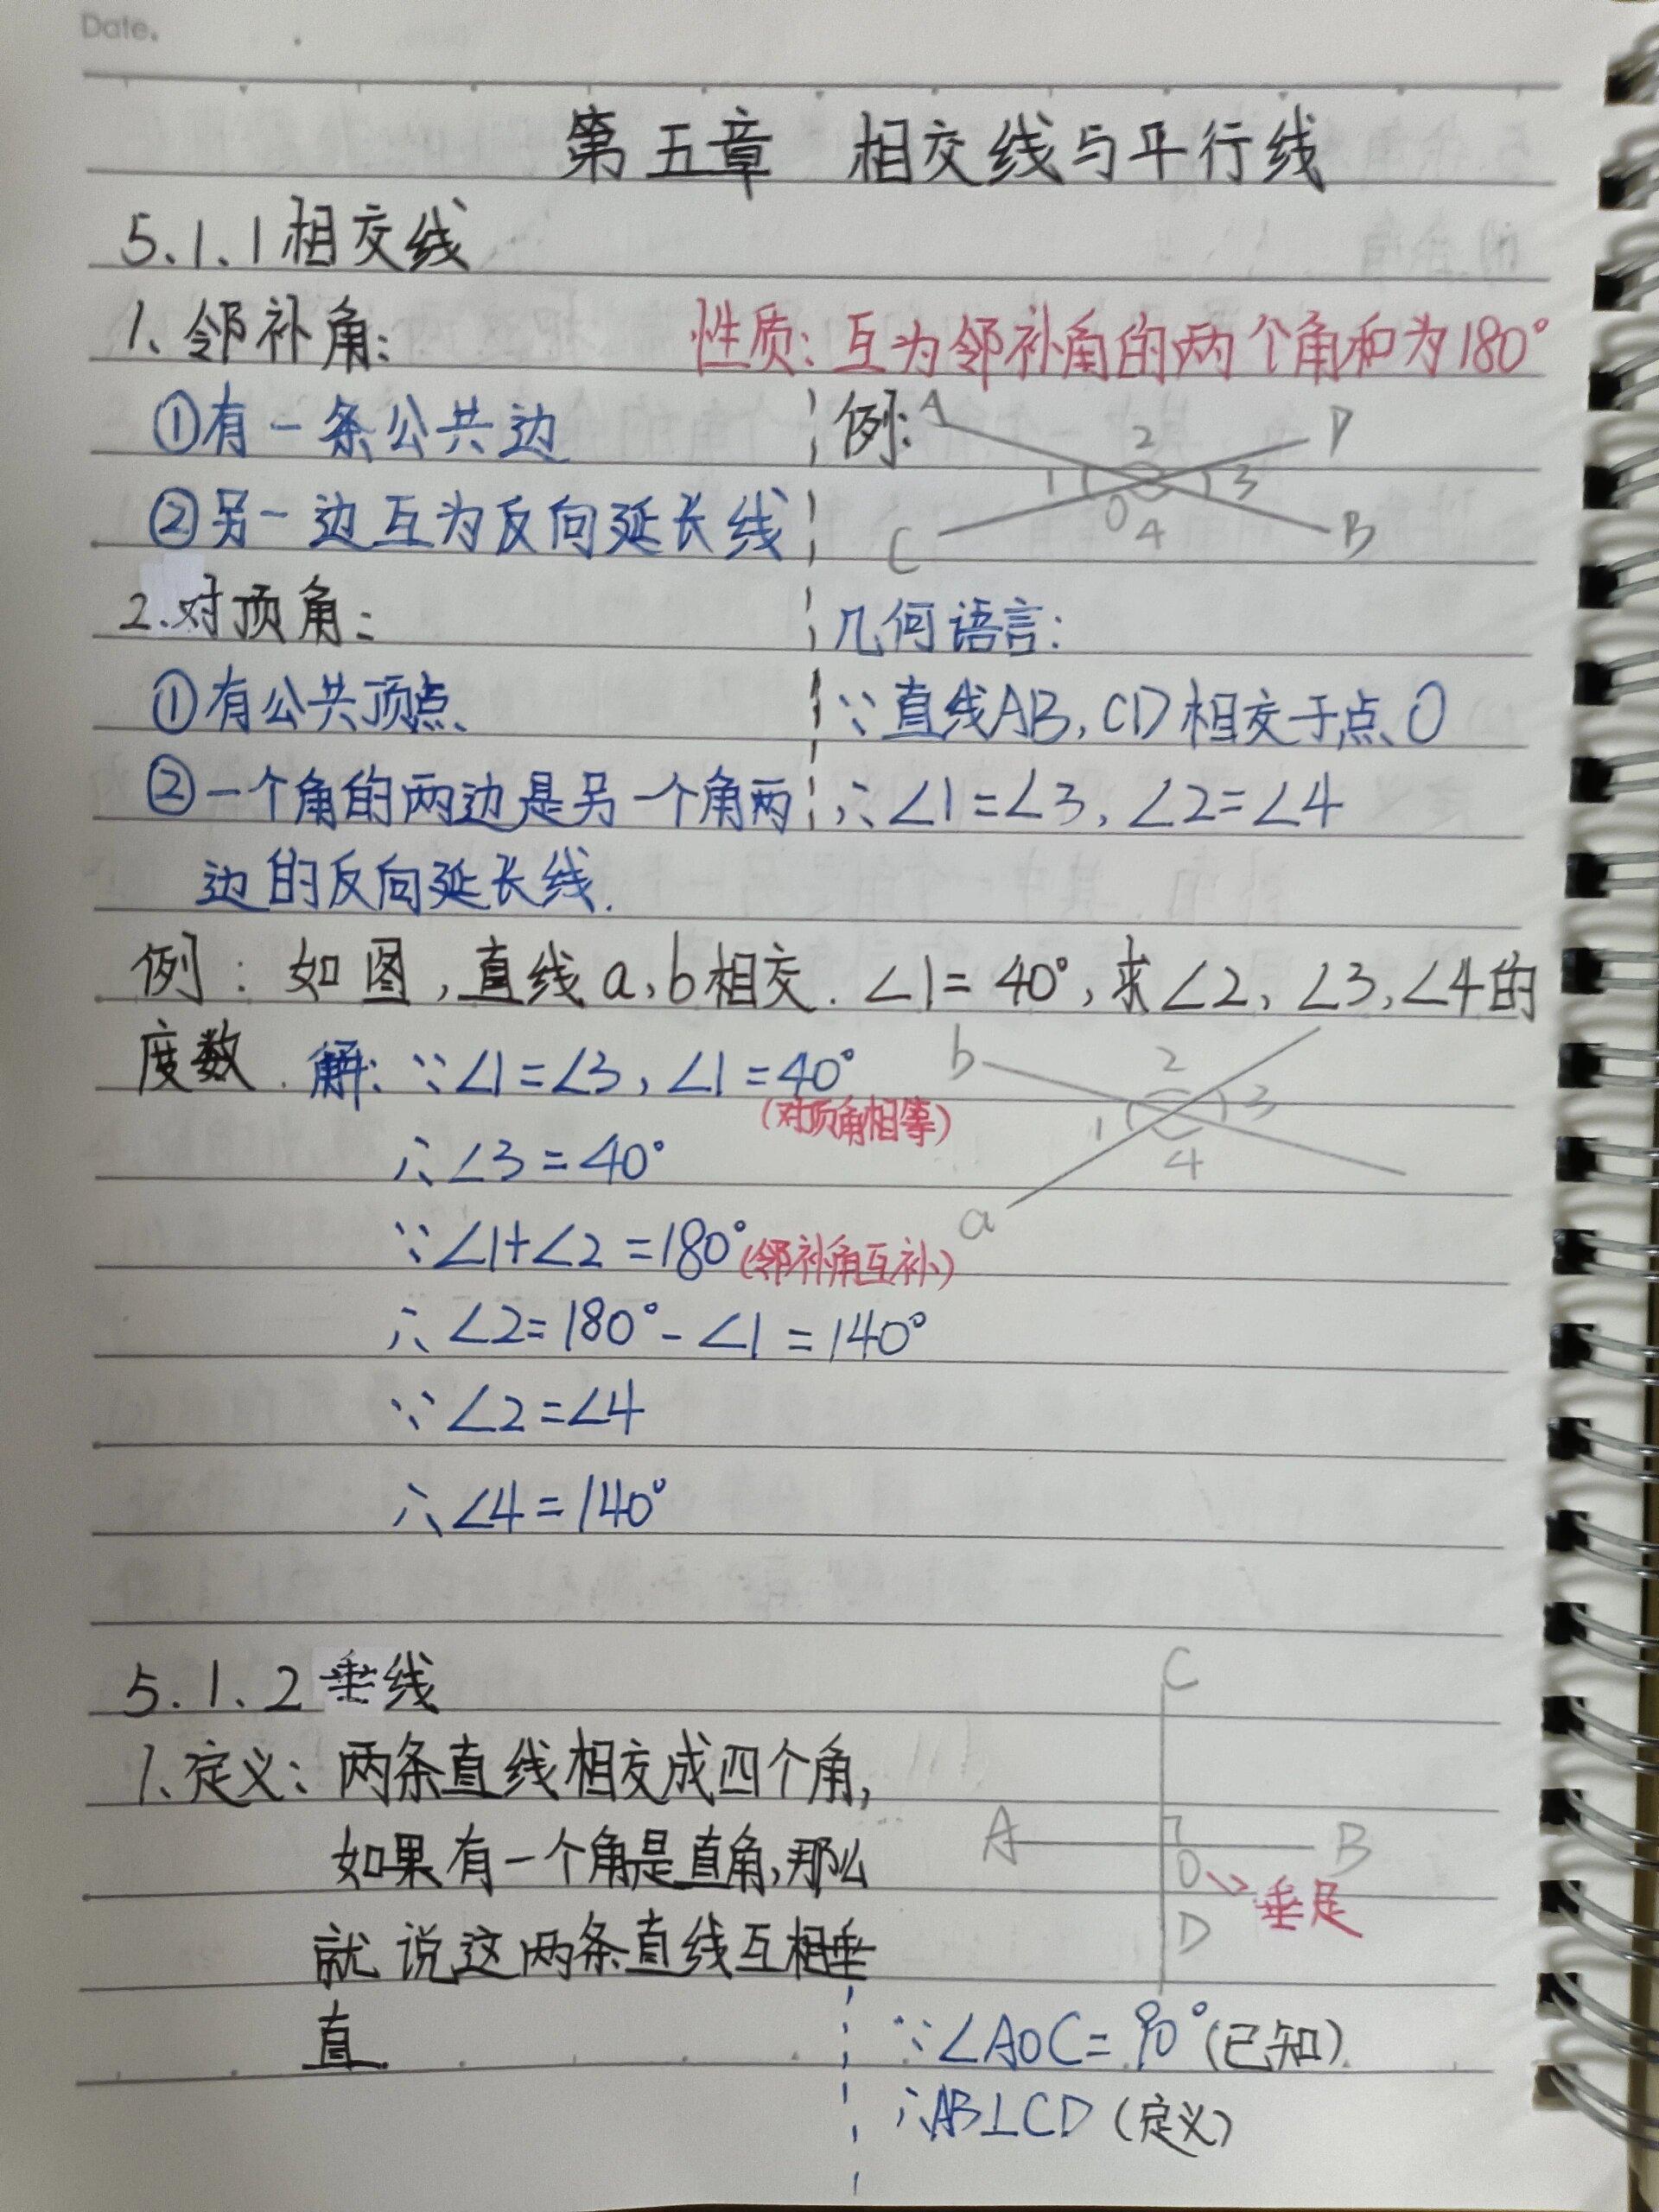 Date.
第五章 相交线与平行线
5.1.1 相交线
1、邻补角: 性质: 互为邻补角的两个角和为180°
①有一条公共边
②另一边互为反向延长线
例:
A
D
2
1
3
O
4
C
B
2.对顶角:
①有公共顶点、
②一个角的两边是另一个角两
边的反向延长线.
几何语言:
∵直线AB,CD相交于点O
∴∠1=∠3,∠2=∠4
例:如图,直线a,b相交.∠1=40°,求∠2,∠3,∠4的
度数. 解:∵∠1=∠3,∠1=40°
(对顶角相等)
∴∠3=40°
∵∠1+∠2=180°(邻补角互补)
∴∠2=180°-∠1=140°
∵∠2=∠4
∴∠4=140°
b
2
1
3
4
a
5.1.2 垂线
1、定义:两条直线相交成四个角,
如果有一个角是直角,那么
就说这两条直线互相垂
直.
C
A
B
O
垂足
D
∵∠AOC=90°(已知)
∴AB⊥CD(定义)